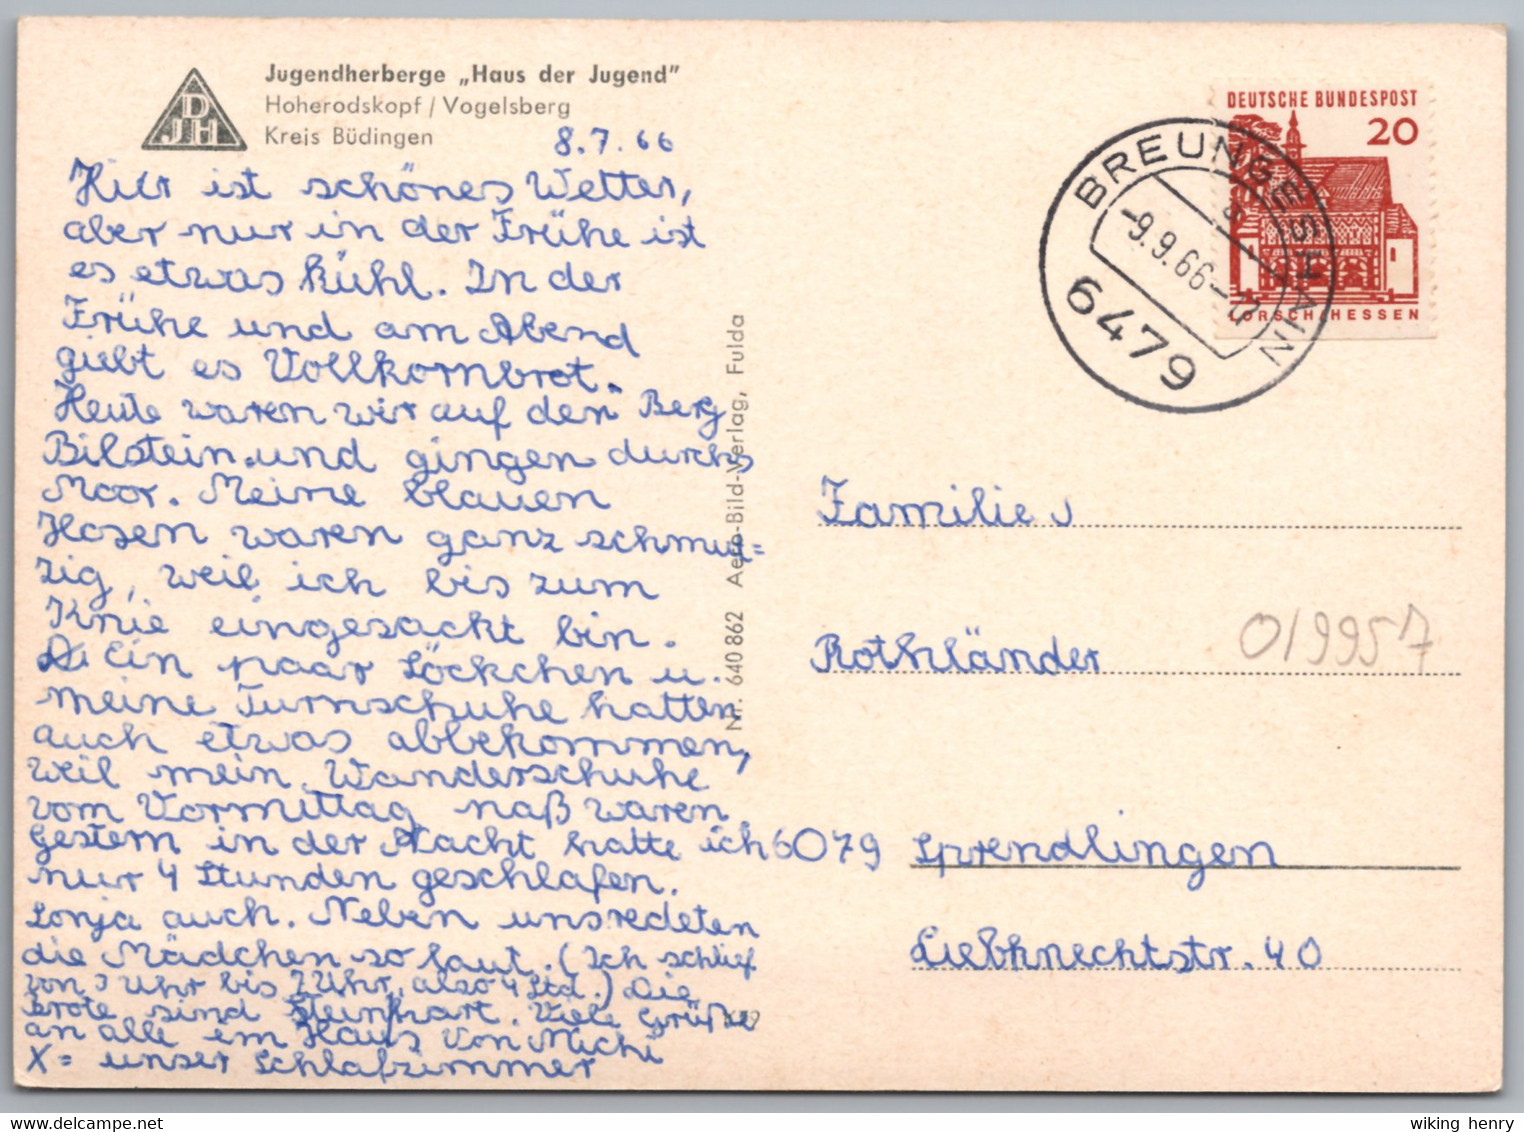 DJH
Jugendherberge „Haus der Jugend"
Hoherodskopf / Vogelsberg
Kreis Büdingen
8.7.66
Hier ist schönes Wetter,
aber nur in der Frühe ist
es etwas kühl. In der
Frühe und am Abend
giebt es Vollkornbrot.
Heute waren wir auf den Berg
Bilstein und gingen durchs
Moor. Meine blauen
Hosen waren ganz schmut=
zig, weil ich bis zum
Knie eingesackt bin.
Ein paar Söckchen u.
meine Turnschuhe hatten
auch etwas abbekommen,
weil mein Wanderschuhe
vom Vormittag naß waren.
Gestern in der Nacht hatte ich
nur 4 Stunden geschlafen.
Sonja auch. Neben uns redeten
die Mädchen so laut. (Ich schlief
von 3 Uhr bis 7 Uhr, also 4 Std.) Die
Brote sind steinhart. Viele Grüße
an alle im Haus von Michi
X = unser Schlafzimmer
Nr. 640 862 Aero-Bild-Verlag, Fulda
DEUTSCHE BUNDESPOST
20
LORSCH/HESSEN
BREUNGESHAIN
-9.9.66-12
6479
Familie
Rothländer
019957
6079 Sprendlingen
Liebknechtstr. 40
wiking henry